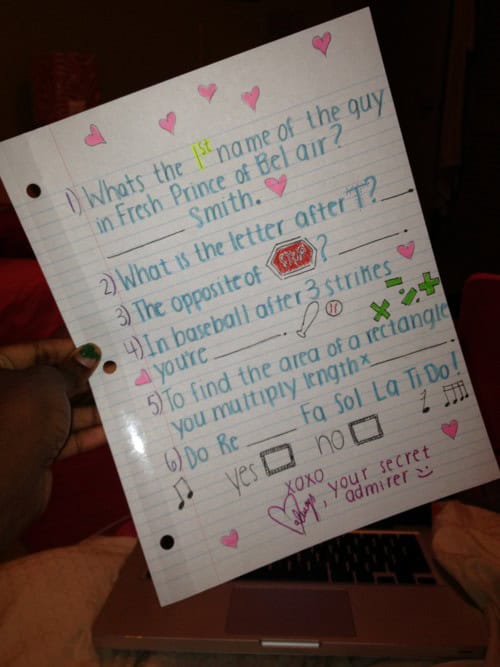 1) Whats the 1st name of the guy
in Fresh Prince of Bel air?
________ Smith.
2) What is the letter after T? ____.
3) The opposite of STOP? ______.
4) In baseball after 3 strikes
you're ______.
5) To find the area of a rectangle
you multiply length x ______.
6) Do Re ____ Fa Sol La Ti Do!
yes no
xoxo
, your secret
admirer :)